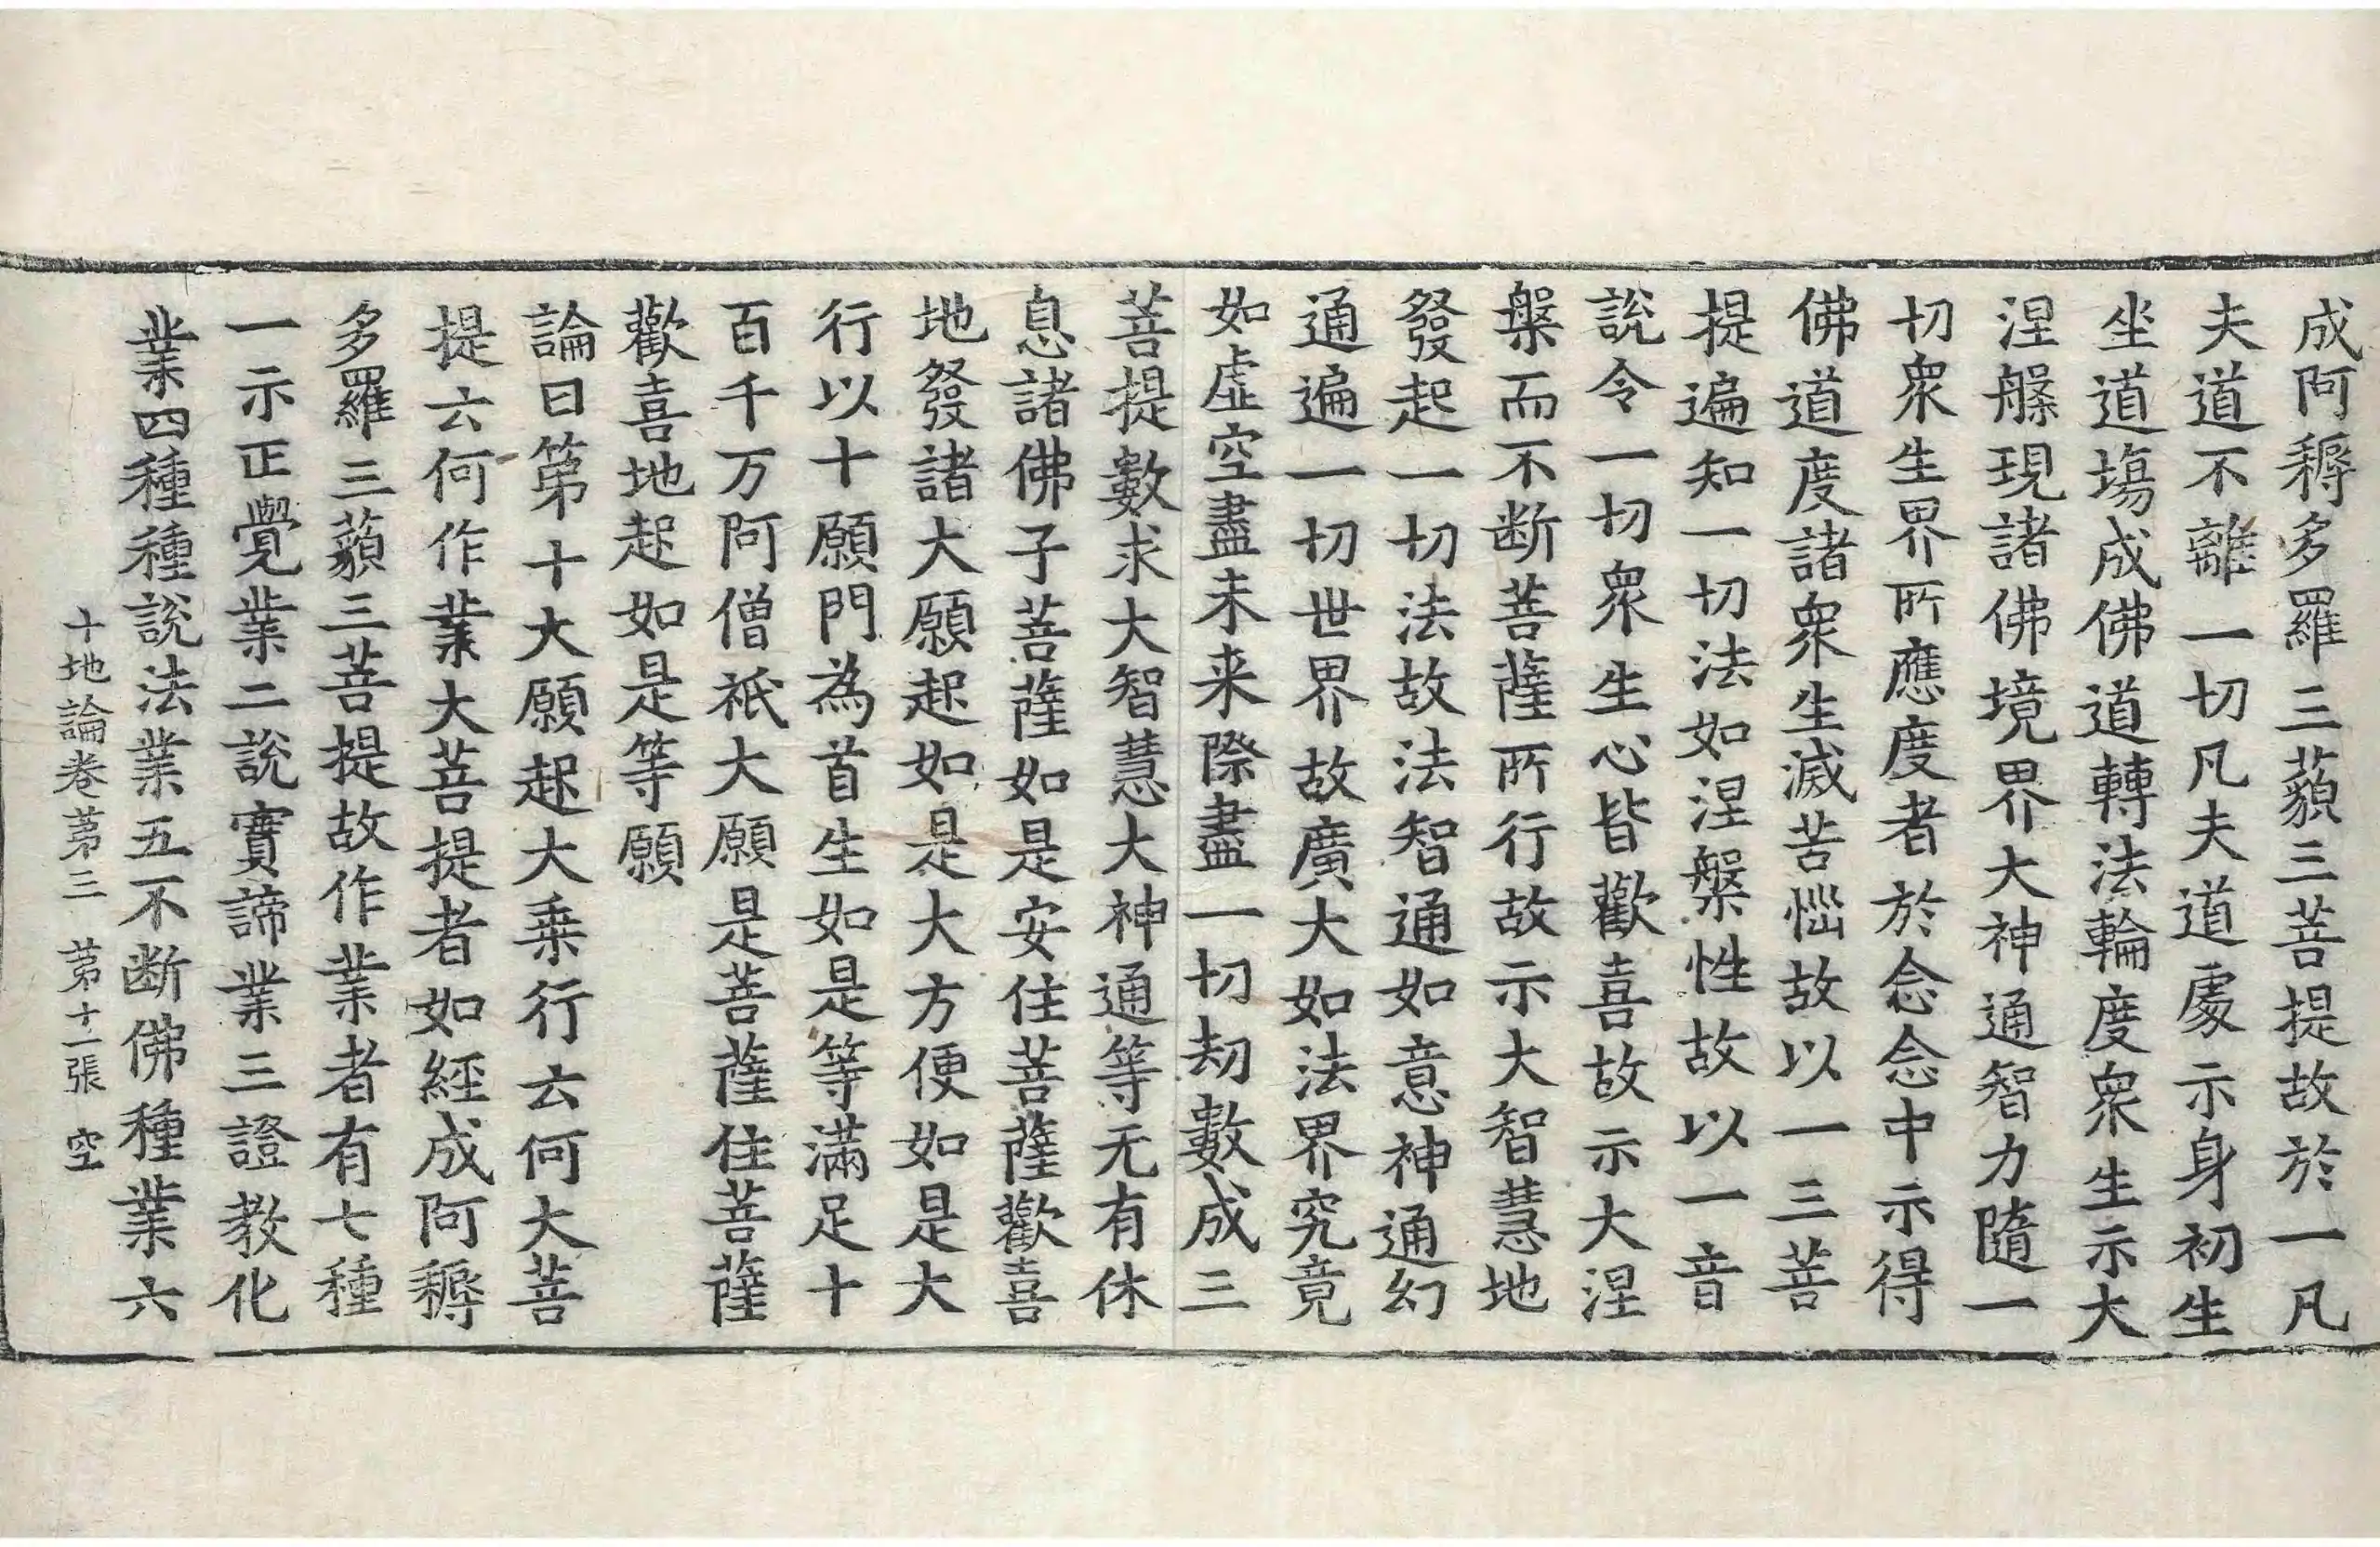 成阿耨多羅三藐三菩提故於一凡
夫道不離一切凡夫道處示身初生
坐道場成佛道轉法輪度衆生示大
涅槃現諸佛境界大神通智力隨一
切衆生界所應度者於念念中示得
佛道度諸衆生滅苦惱故以一三菩
提遍知一切法如涅槃性故以一音
說令一切衆生心皆歡喜故示大涅
槃而不断菩薩所行故示大智慧地
發起一切法故法智通如意神通幻
通遍一切世界故廣大如法界究竟
如虛空盡未来際盡一切劫數成三
菩提數求大智慧大神通等无有休
息諸佛子菩薩如是安住菩薩歡喜
地發諸大願起如是大方便如是大
行以十願門為首生如是等滿足十
百千万阿僧祇大願是菩薩住菩薩
歡喜地起如是等願
論曰第十大願起大乗行云何大菩
提云何作業大菩提者如經成阿耨
多羅三藐三菩提故作業者有七種
一示正覺業二說實諦業三證教化
業四種種說法業五不断佛種業六
十地論卷第三 第十二張 空